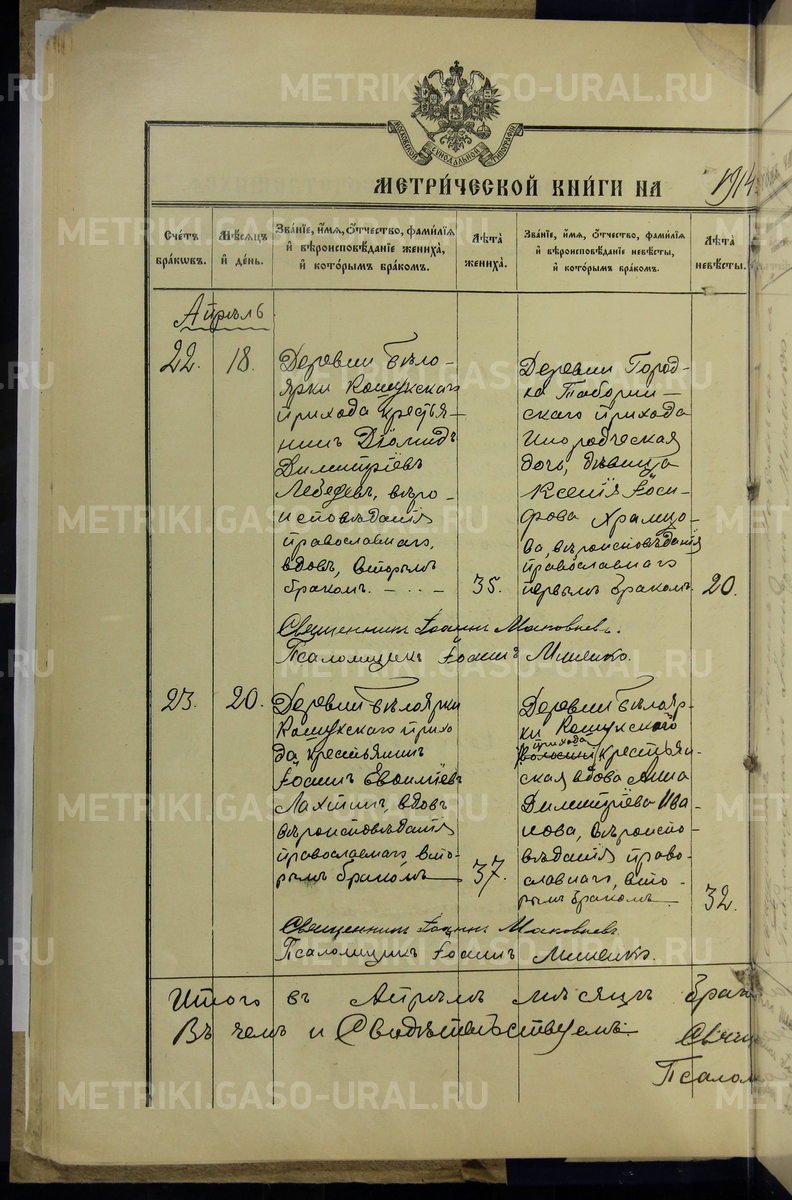 МЕТРИ́ЧЕСКОЙ КНИ́ГИ НА 1914
МОСКОВСКОЙ СѴНОДАЛЬНОЙ ТИПОГРАФІИ
Счетъ бра́ковъ.
Мѣ́сяцъ и́ де́нь.
Зва́ніе, и́мѧ, ѻ́тчество, фами́лїѧ и́ вѣроисповѣ́данїе жениха̀, и́ кото́рымъ бра́комъ.
Лѣ́та жениха̀.
Зва́нїе, и́мѧ, ѻ́тчество, фами́лїѧ и́ вѣроисповѣ́данїе невѣ́сты, и́ кото́рымъ бра́комъ.
Лѣ́та невѣ́сты.
Апрѣль
22.
18.
Деревни Бѣло-
ярки Кошукскаго
прихода крестья-
нинъ Діомидъ
Димитріевъ
Лебедевъ, вѣро-
исповѣданія
православнаго,
вдовъ, вторымъ
бракомъ. - . . -
35.
Деревни Город-
ка Таборин-
скаго прихода
Инородческая
дочь, дѣвица
Ксенія Іоси-
фова Храмцо-
ва, вѣроисповѣданія
православнаго
первымъ бракомъ.
20.
Священникъ Іоаннъ Маковеевъ.
Псаломщикъ Іоаннъ Мишенко.
23.
20.
Деревни Бѣлоярки
Кошукскаго прихо
да крестьянинъ
Іоаннъ Евѳиміевъ
Лахтинъ, вдовъ
вѣроисповѣданія
православнаго, вто-
рымъ бракомъ
37.
Деревни Бѣлояр-
ки Кошукскаго
прихода
волости крестьян-
ская вдова Анна
Димитріева Ива-
нова, вѣроиспо-
вѣданія право-
славнаго, вто-
рымъ бракомъ
32.
Священникъ Іоаннъ Маковеевъ.
Псаломщикъ Іоаннъ Мишенко.
Итого въ Апрѣлѣ мѣсяцѣ брач
Въ чемъ и Свидѣтельствуемъ. Свящ
Псалом
METRIKI.GASO-URAL.RU